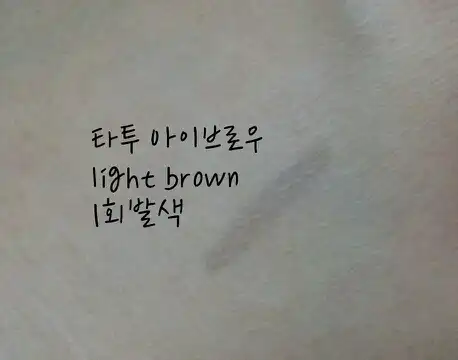 타투 아이브로우
light brown
1회발색